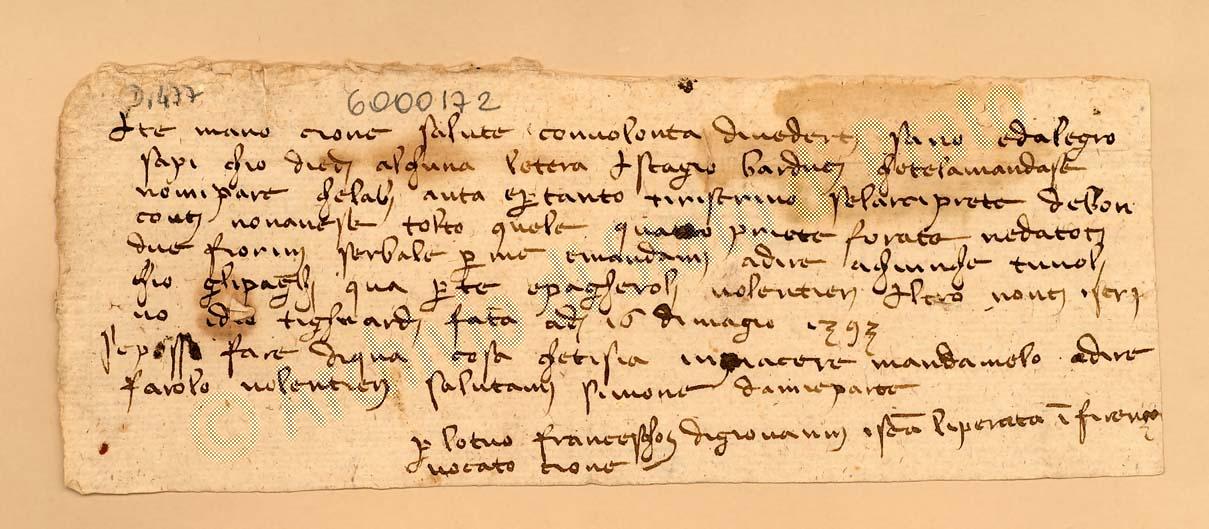 D, 477
6000172
Fte mano cione salute convolonta divederti sano edalegro
sapi chio diedi alchuna letera Istagio barducci chetelamandase
nonipare chelabi auta epertanto tiriscrivo selarciprete debon
conti nonavese tolto quele quatro priete forate nedatoti
due fiorini serbale per me emandami adire achiunche tuvoli
chio glipaghi qua perte epagheroli volentieri Altro nonti iscri
vo idio tighuardi fata adi 16 dimagio 1393
Seposso fare diqua cosa chetisia inpiacere mandamelo adire
farolo volentieri salutami simone damieparte
per lotuo francescho digiovanni isca liperata i firenze
vocato cione
© Archivio